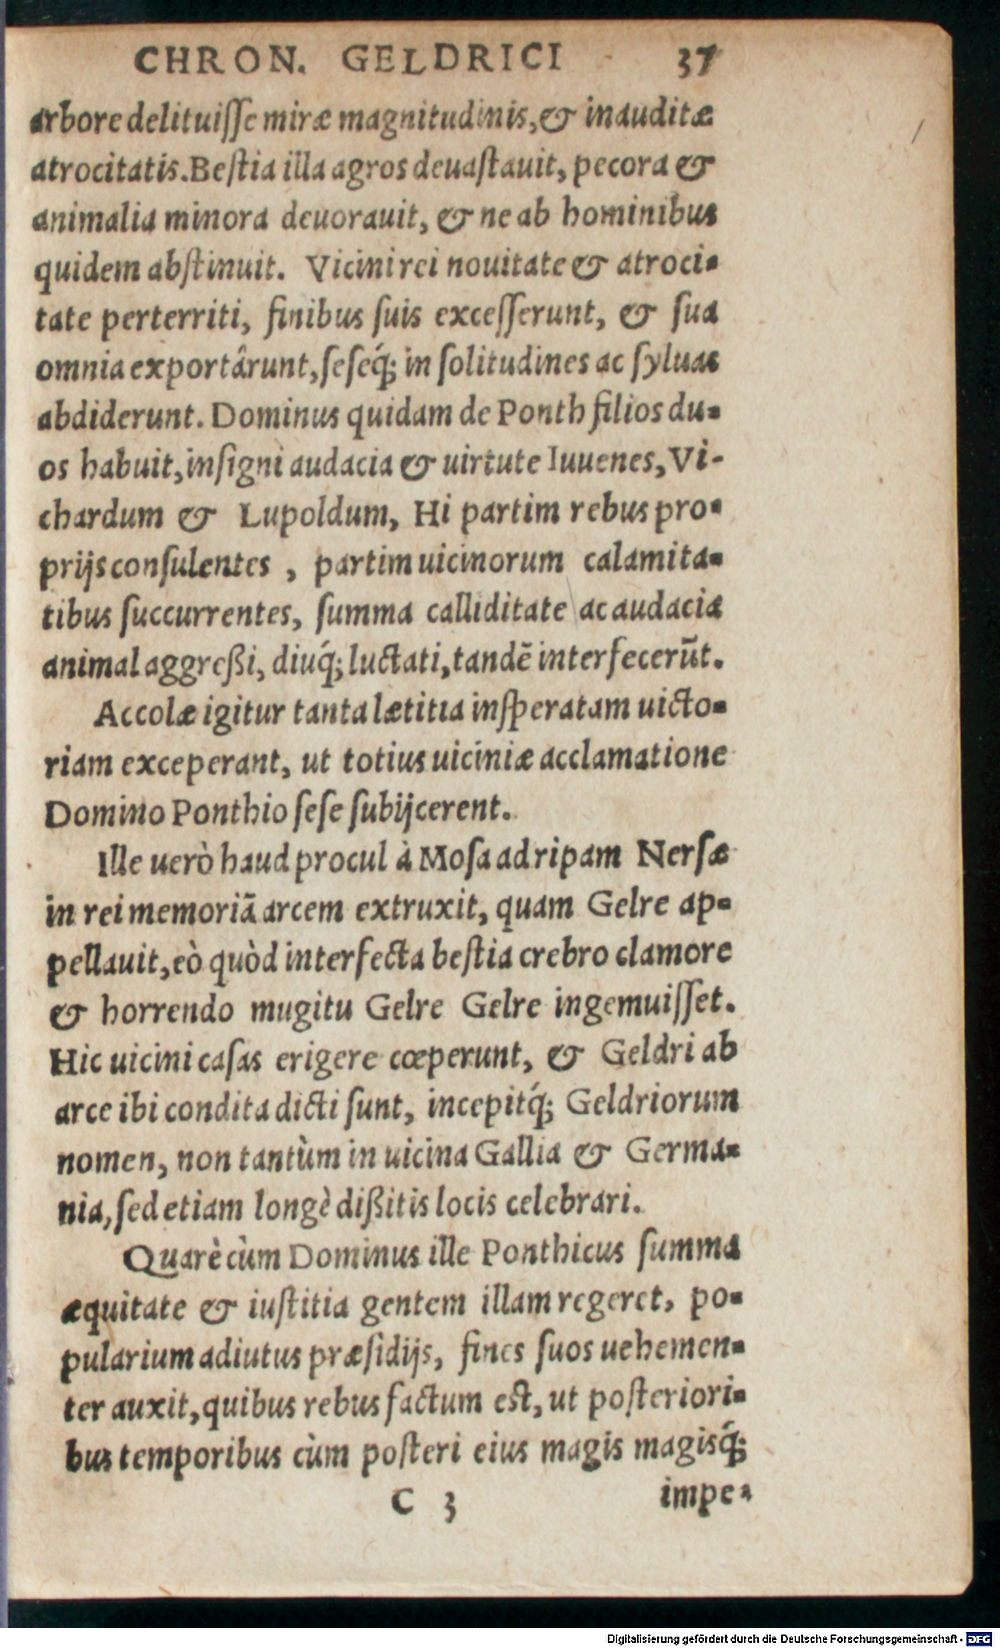 CHRON. GELDRICI 37
arbore delituiſſe miræ magnitudinis, & inauditæ
atrocitatis. Beſtia illa agros deuaſtauit, pecora &
animalia minora deuorauit, & ne ab hominibus
quidem abſtinuit. Vicini rei nouitate & atroci-
tate perterriti, finibus ſuis exceſſerunt, & ſua
omnia exportârunt, ſeſeq́; in ſolitudines ac ſyluas
abdiderunt. Dominus quidam de Ponth filios du-
os habuit, inſigni audacia & uirtute Iuuenes, Vi-
chardum & Lupoldum, Hi partim rebus pro-
prijs conſulentes, partim uicinorum calamita-
tibus ſuccurrentes, ſumma calliditate ac audacia
animal aggreßi, diuq́; luctati, tandẽ interfecerũt.
Accolæ igitur tanta lætitia inſperatam uicto-
riam exceperant, ut totius uiciniæ acclamatione
Domino Ponthio ſeſe ſubijcerent.
Ille uerò haud procul à Moſa ad ripam Nerſæ
in rei memoriã arcem extruxit, quam Gelre ap-
pellauit, eò quòd interfecta beſtia crebro clamore
& horrendo mugitu Gelre Gelre ingemuiſſet.
Hic uicini caſas erigere cœperunt, & Geldri ab
arce ibi condita dicti ſunt, incepitq́; Geldriorum
nomen, non tantùm in uicina Gallia & Germa-
nia, ſed etiam longè dißitis locis celebrari.
Quarè cùm Dominus ille Ponthicus ſumma
æquitate & iuſtitia gentem illam regeret, po-
pularium adiutus præſidijs, fines ſuos uehemen-
ter auxit, quibus rebus factum eſt, ut poſteriori-
bus temporibus cùm poſteri eius magis magisq́;
C 3 impe-
Digitalisierung gefördert durch die Deutsche Forschungsgemeinschaft - DFG